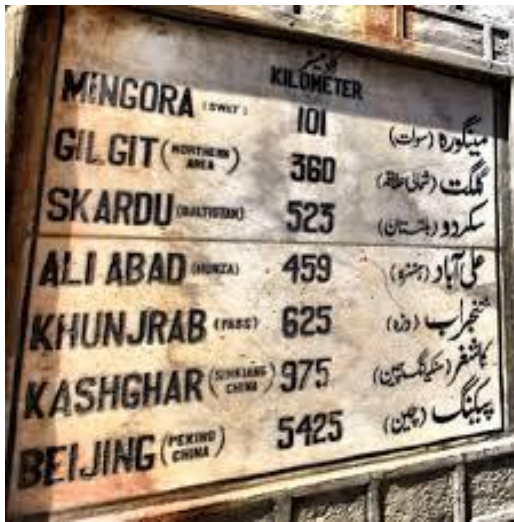 کلومیٹر
KILOMETER
MINGORA (SWAT) 101 مینگورہ (سوات)
GILGIT (NORTHERN AREA) 360 گلگت (شمالی علاقہ)
SKARDU (BALTISTAN) 523 سکردو (بلتستان)
ALI ABAD (HUNZA) 459 علی آباد (ہنزہ)
KHUNJRAB (PASS) 625 خنجراب (درہ)
KASHGHAR (SINKIANG CHINA) 975 کاشغر (سنکیانگ چین)
BEIJING (PEKING CHINA) 5425 پیکنگ (چین)